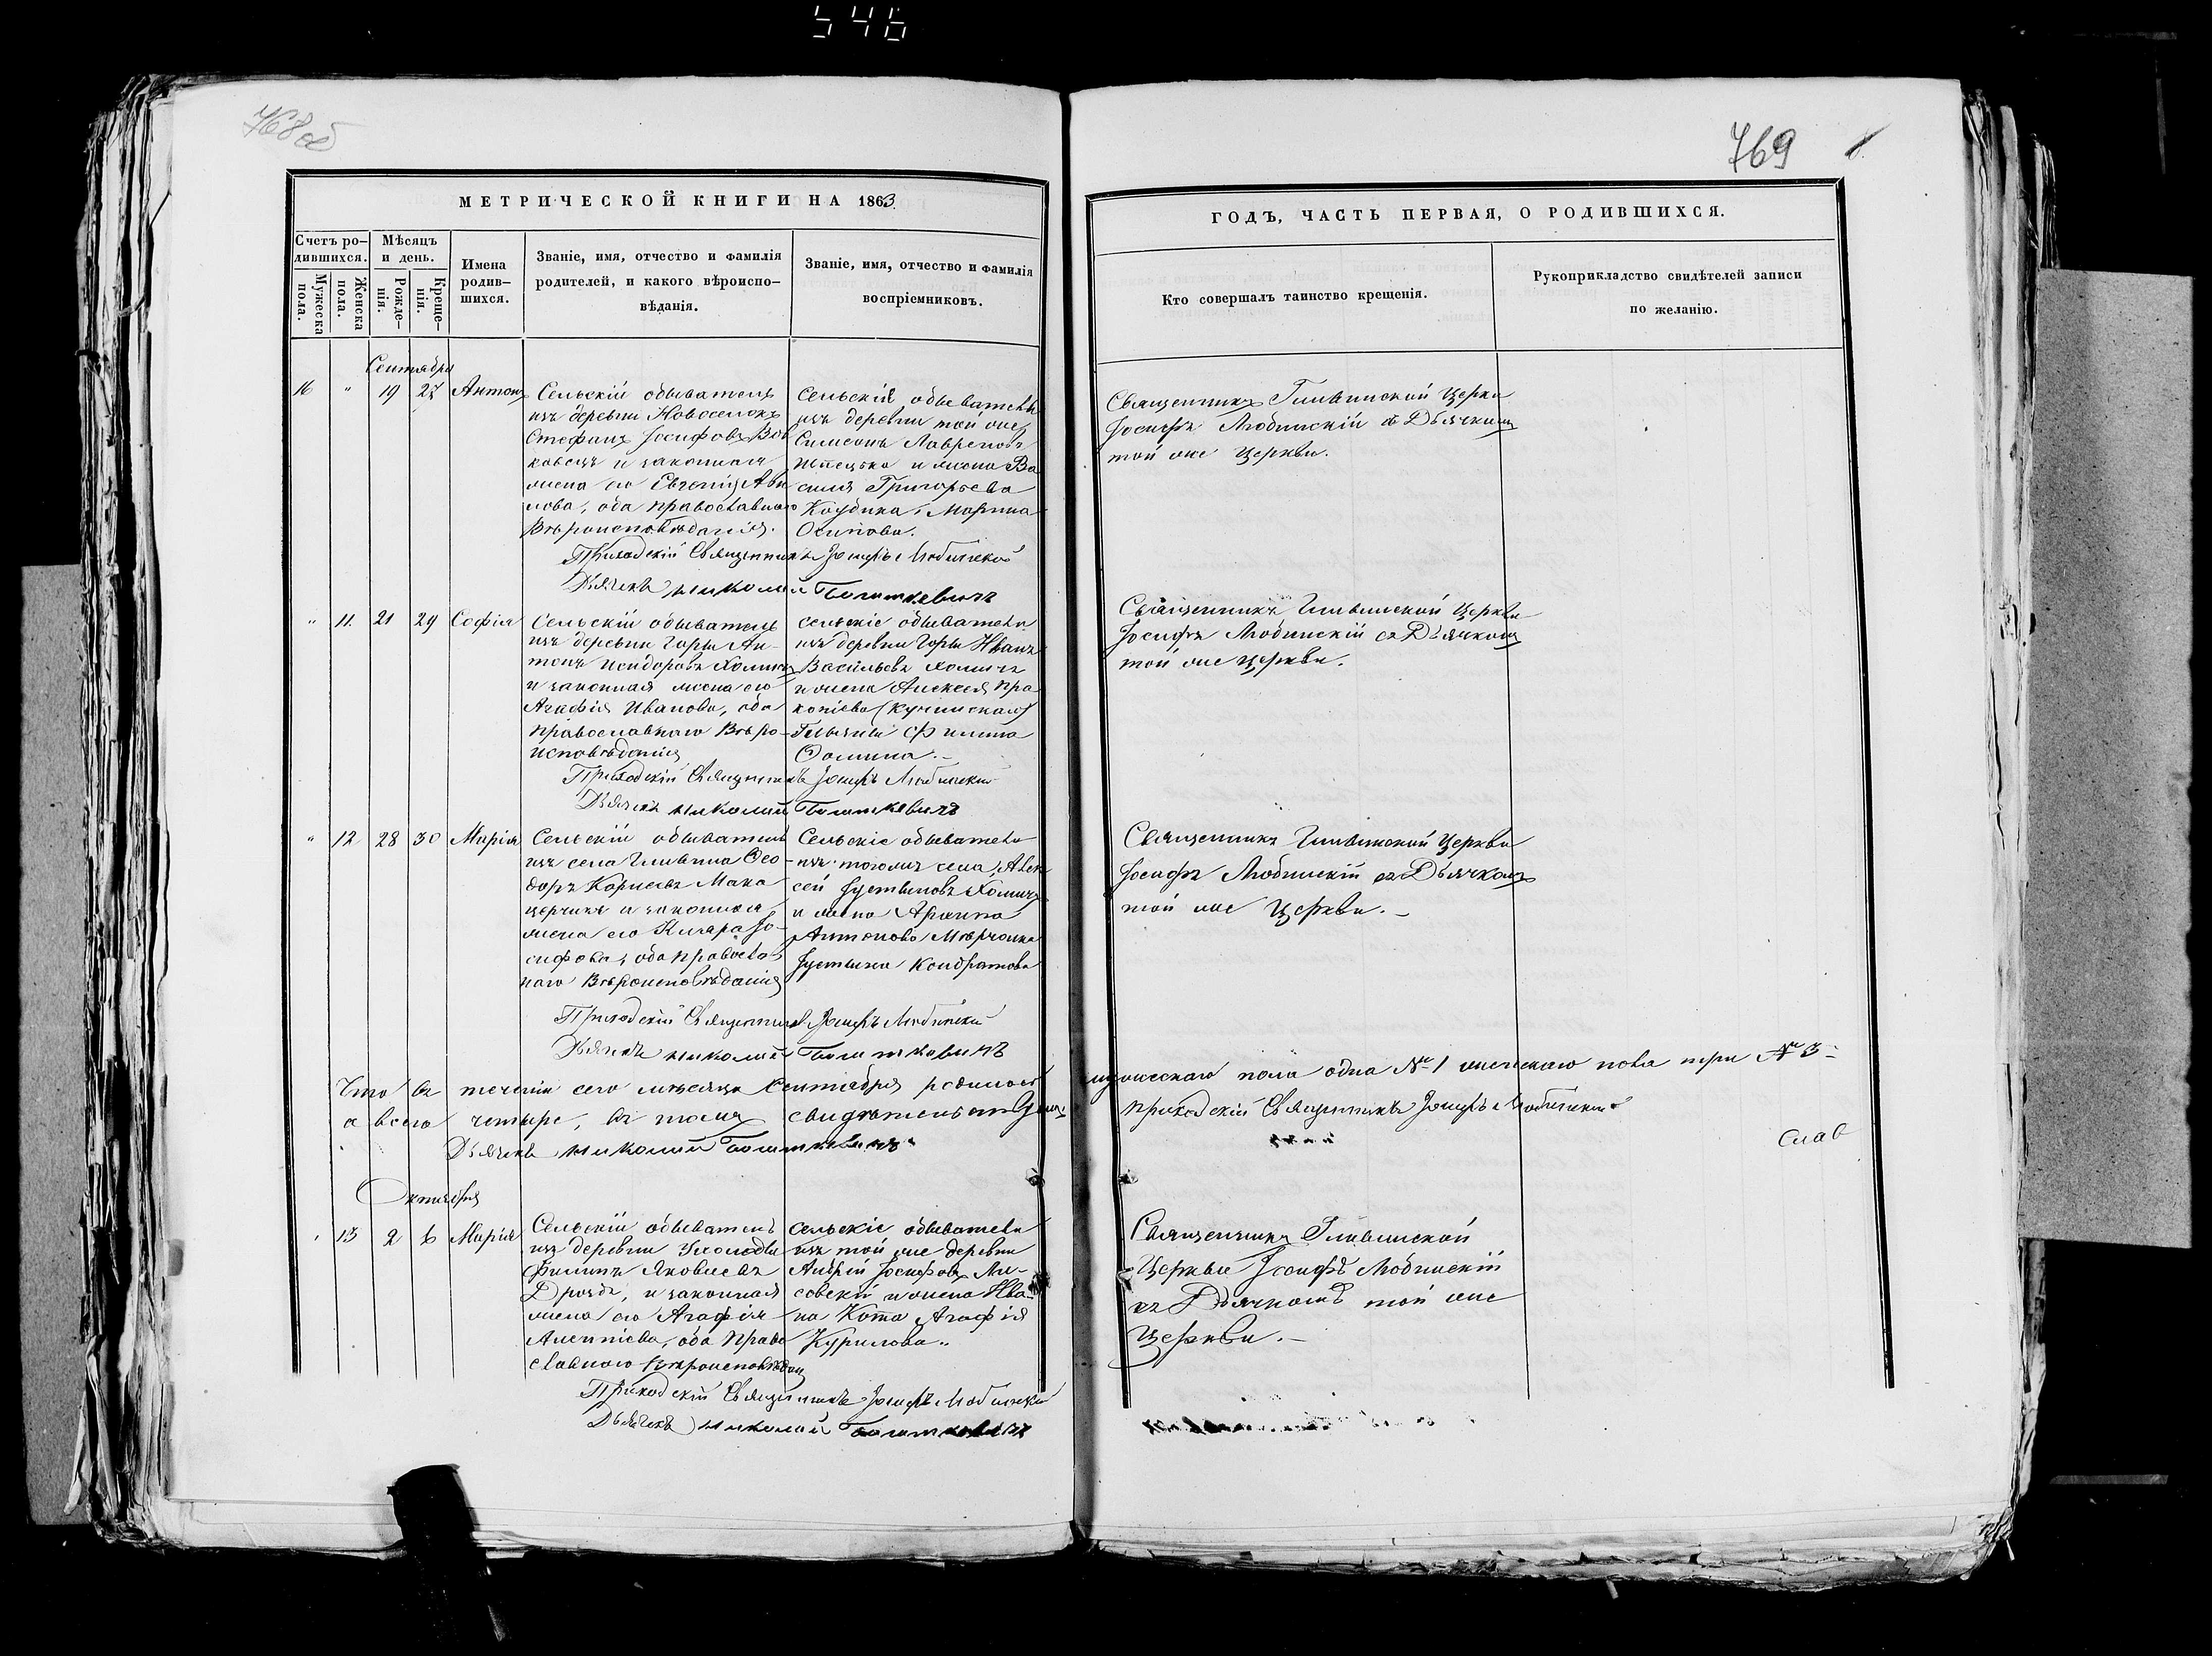 546
768 об
769
МЕТРИЧЕСКОЙ КНИГИ НА 1863
ГОДЪ, ЧАСТЬ ПЕРВАЯ, О РОДИВШИХСЯ.
Счетъ ро-
дившихся.
Мужеска
пола.
Женска
пола.
Мѣсяцъ
и день.
Рожде-
нія.
Креще-
нія.
Имена
родив-
шихся.
Званіе, имя, отчество и фамилія
родителей, и какого вѣроиспо-
вѣданія.
Званіе, имя, отчество и фамилія
воспріемниковъ.
Кто совершалъ таинство крещенія.
Рукоприкладство свидѣтелей записи
по желанію.
Сентября
16 " 19 27 Антонъ
Сельскій обыватель
изъ деревни Новоселокъ
Стефанъ Іосифовъ Вол
ковецъ и законная
жена его Евгенія
оба православнаго
Вѣроисповѣданія.
Сельскіе обыватели
изъ деревни той же
Симеонъ
и жена Ва
силія Григорьева
Марина
Осипова.
Священникъ Гливинской Церкви
Іосифъ Любинскій съ Дьячкомъ
той же Церкви.
Приходскій Священникъ Іосифъ Любинскій
Дьячекъ Николай
" 11. 21 29 Софія
Сельскій обыватель
изъ деревни Горы Ан-
тонъ Исидоровъ Хомичъ
и законная жена его
Агафія Иванова, оба
православнаго Вѣро-
исповѣданія
сельскіе обыватели
изъ деревни Горы Иванъ
Васильевъ Хомичъ
и жена Алексея Про
копіева
Фомина.-
Священникъ Гливинской Церкви
Іосифъ Любинскій съ Дьячкомъ
той же Церкви.
Приходскій Священникъ Іосифъ Любинскій
Дьячекъ Николай
" 12 28 30 Марія
Сельскій обыватель
изъ села Гливина Ѳео-
доръ Корнеевъ Мака
и законная
жена его Іо-
сифова, оба православ
наго Вѣроисповѣданія
Сельскіе обыватели
изъ тогожъ села, Алек
сей Іустиновъ Хомичъ
и жена
Антонова
Іустина Кондратова
Священникъ Гливинской Церкви
Іосифъ Любинскій съ Дьячкомъ
той же Церкви.-
Приходскій Священникъ Іосифъ Любинскій
Дьячекъ Николай
Что въ теченіи сего мѣсяца Сентября родилось мужескаго пола одна № 1 женскаго пола три № 3-
а всего четыре, въ томъ свидѣтельствуемъ Приходскій Священникъ Іосифъ Любинскій
Дьячекъ Николай
Слав
Октября
" 13 2 6 Марія
Сельскій обыватель
изъ деревни
Филипъ Яковлевъ
Дроздъ, и законная
жена его Агафія
оба право
славнаго вѣроисповѣдан
сельскіе обыватели
изъ той же деревни
Андрей Іосифовъ Ли-
совскій и жена Ива-
на Кота Агафія
Курилова.
Священникъ Гливинской
Церкви Іосифъ Любинскій
съ Дьячкомъ той же
Церкви.-
Приходскій Священникъ Іосифъ Любинскій
Дьячекъ Николай